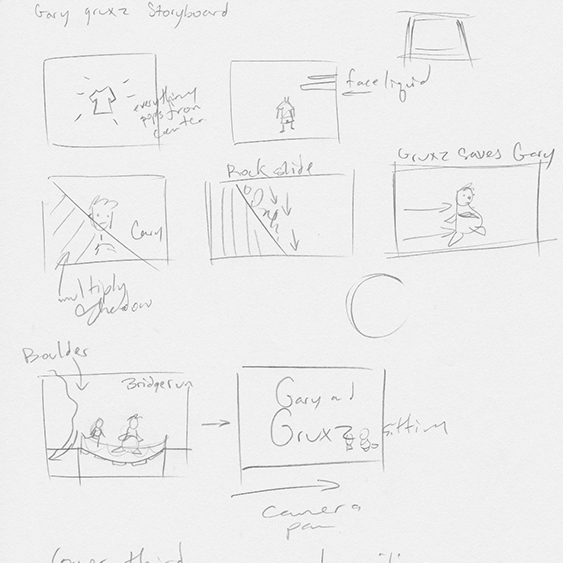 Gary gruxz Storyboard
everything
pops from
center
face liquid
Gary
multiply
shadow
Rock slide
Gruxz saves Gary
Boulder
Bridge run
Gary and
Gruxz
sitting
camera
pan
Lower third